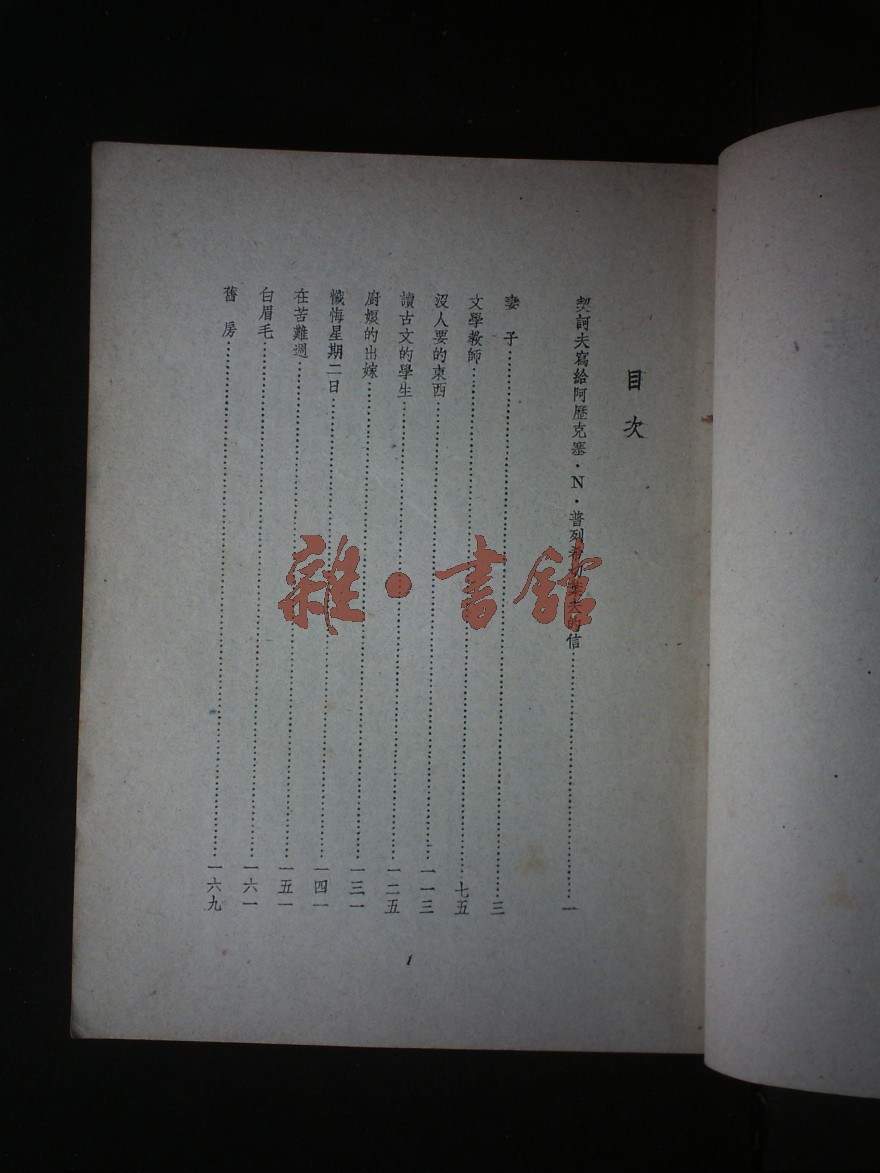 目次
契訶夫寫給阿歷克塞·N·普列希葉夫的信……一
妻子……三
文學教師……七五
沒人要的東西……一一三
讀古文的學生……一二五
廚娘的出嫁……一三一
懺悔星期二日……一四一
在苦難週……一五一
白眉毛……一六一
舊房……一六九
1
雜·書館